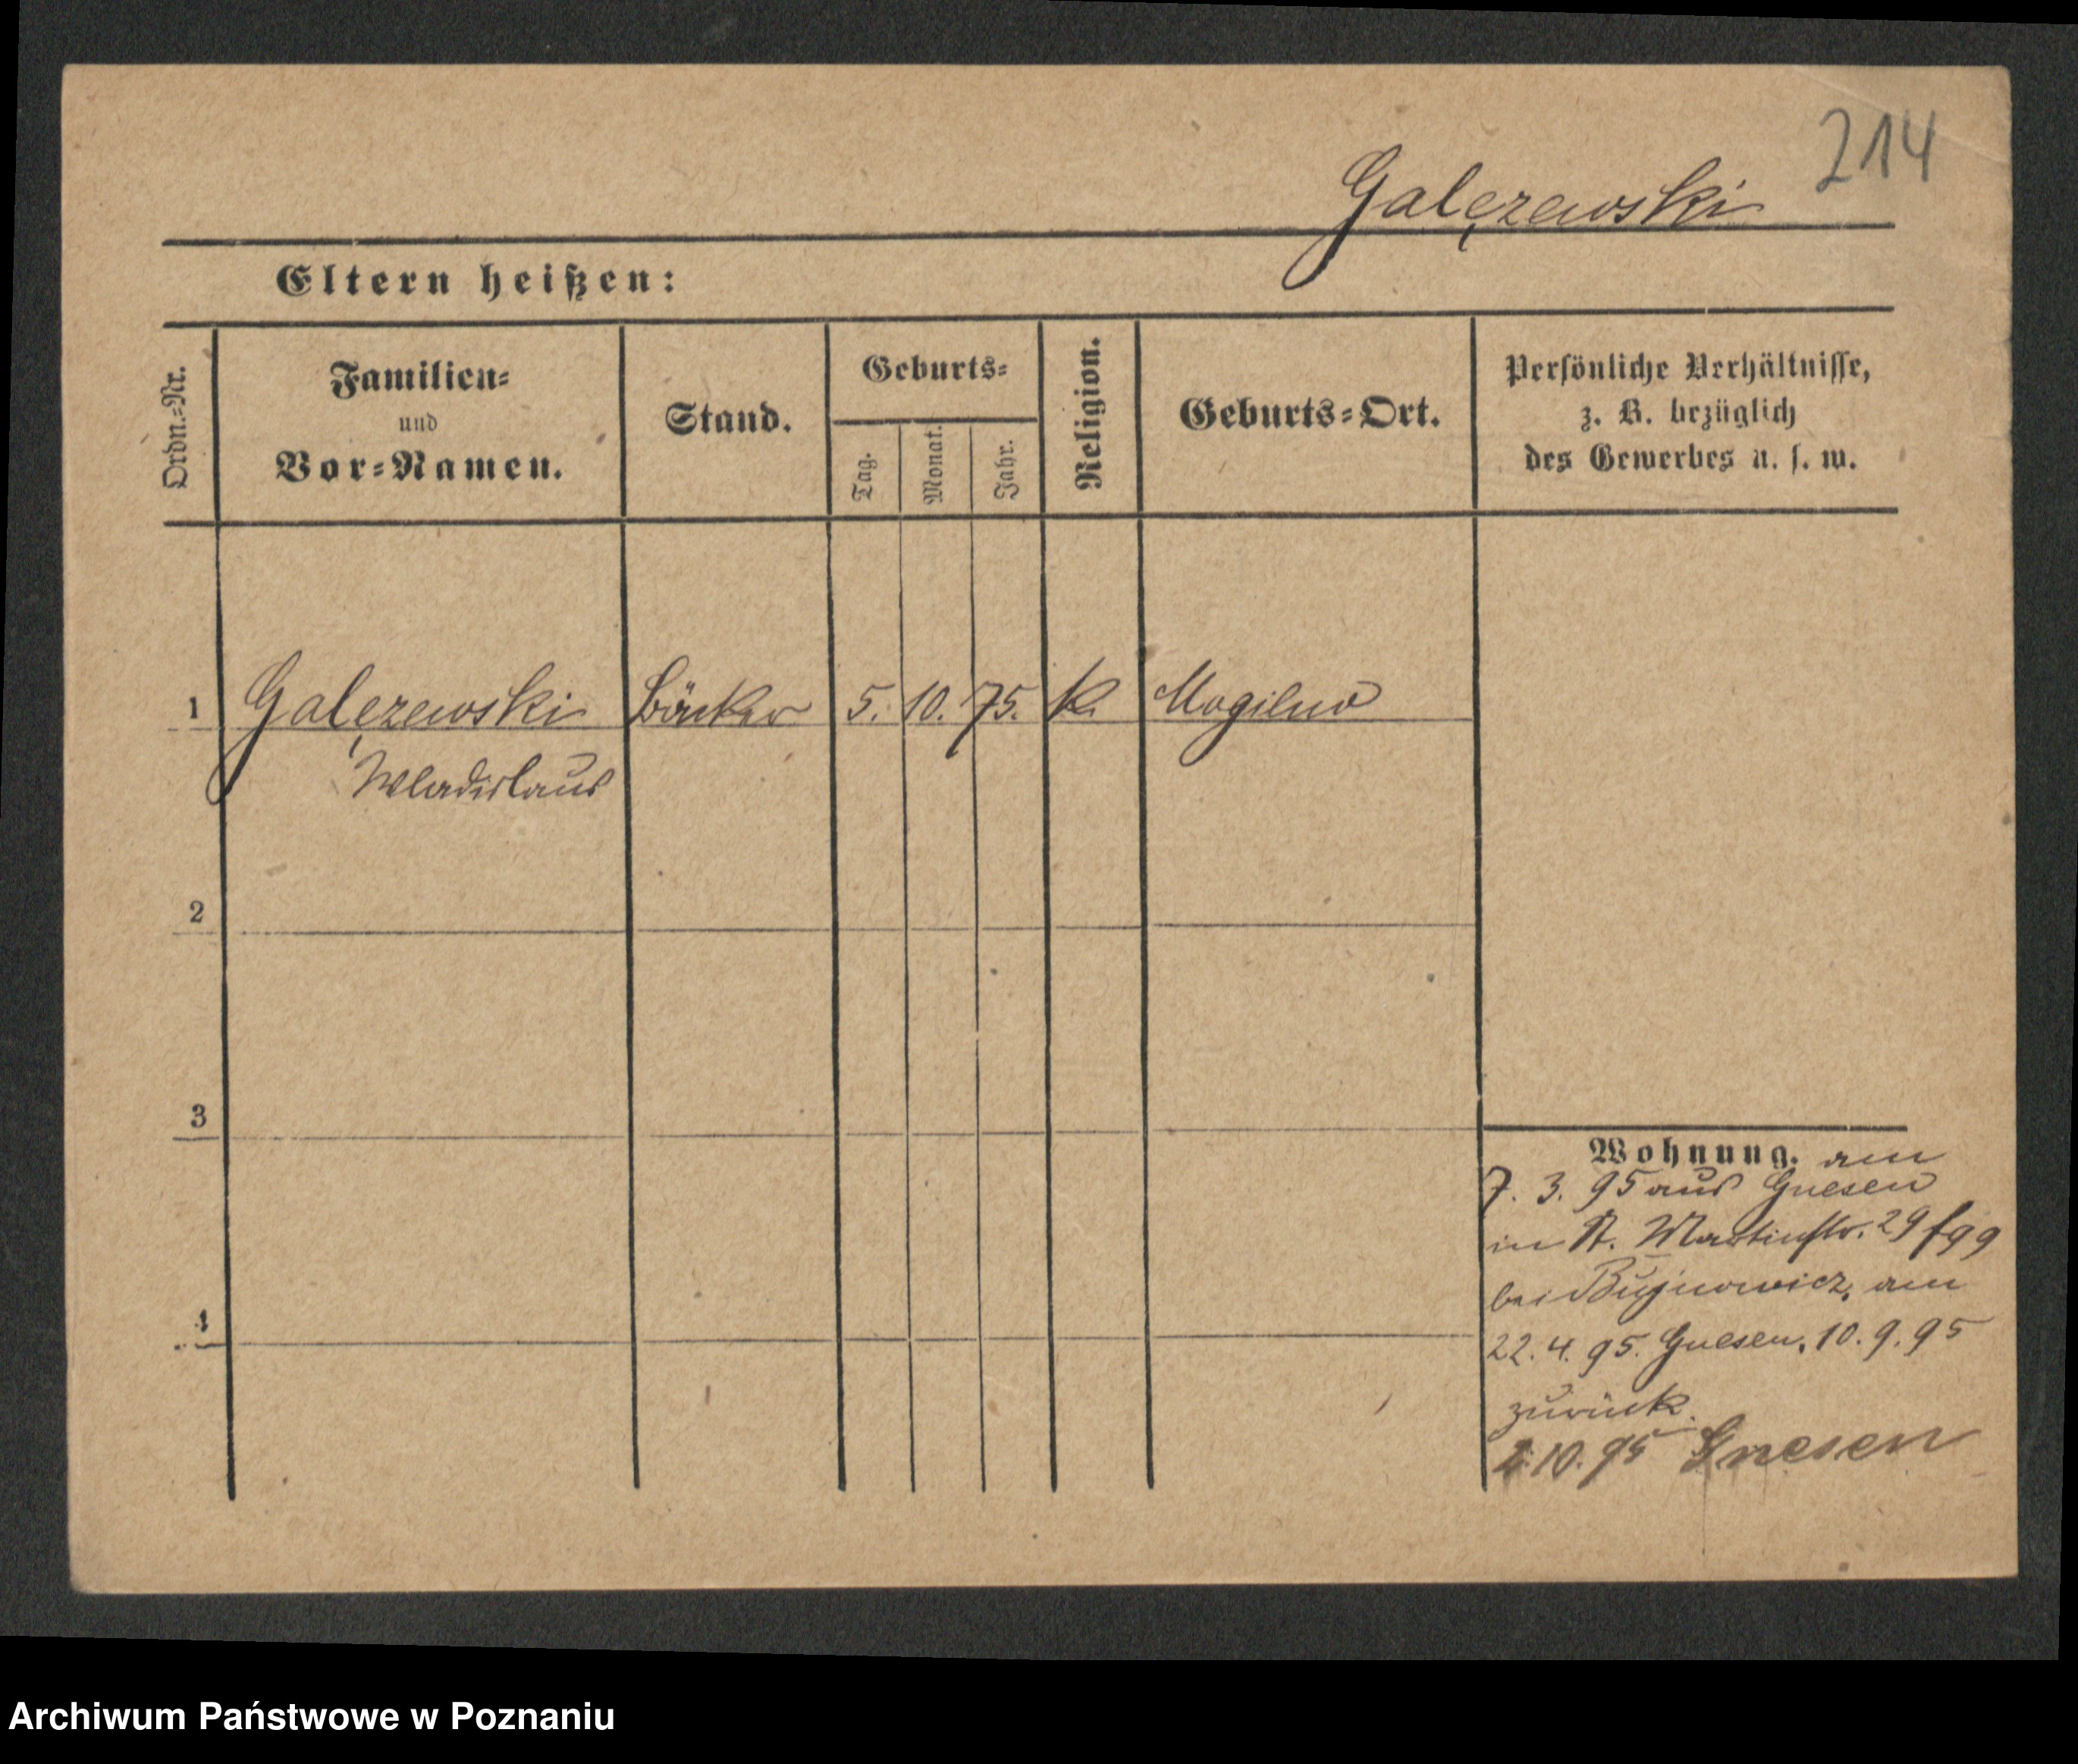 214
Galęzewski
Eltern heißen:
Ordn.=Nr.
Familien=
und
Vor=Namen.
Stand.
Geburts=
Tag.
Monat.
Jahr.
Religion.
Geburts=Ort.
Persönliche Verhältnisse,
z. B. bezüglich
des Gewerbes u. s. w.
1 Galęzewski Bäcker 5. 10. 75. K. Mogilno
Wladislaus
2
3
4
Wohnung. am
7. 3. 95 aus Gnesen
in St. Martinstr. 29
bei Bujnowicz, am
22. 4. 95. Gnesen. 10. 9. 95
zurück.
10. 95 Gnesen
Archiwum Państwowe w Poznaniu